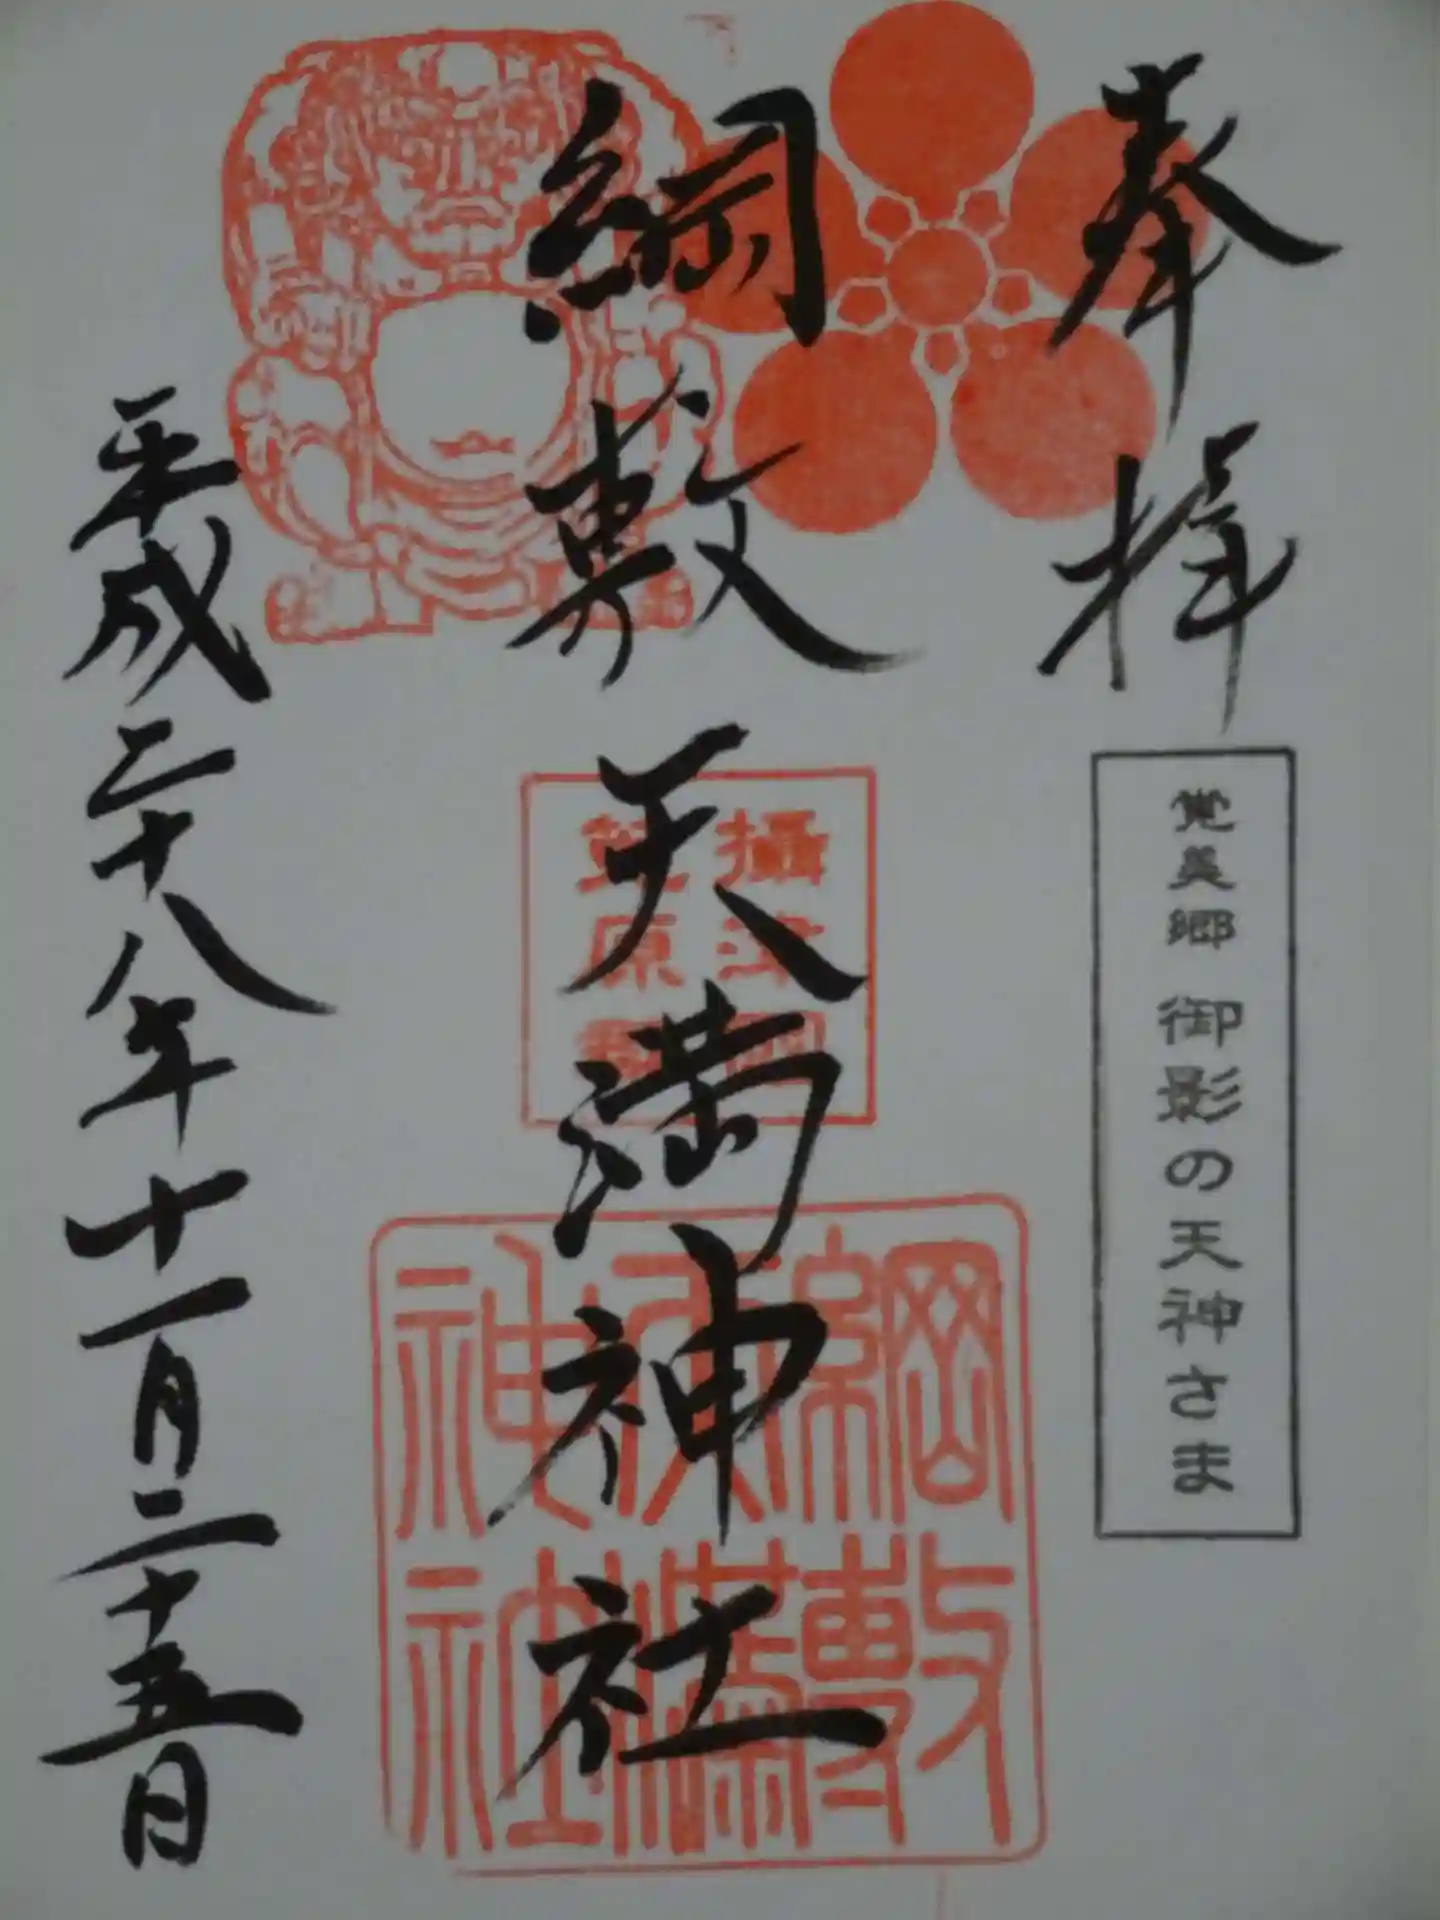 奉拝
覚美郷 御影の天神さま
綱敷天満神社
攝津國
原
綱敷天満神社
平成二十八年十一月二十五日